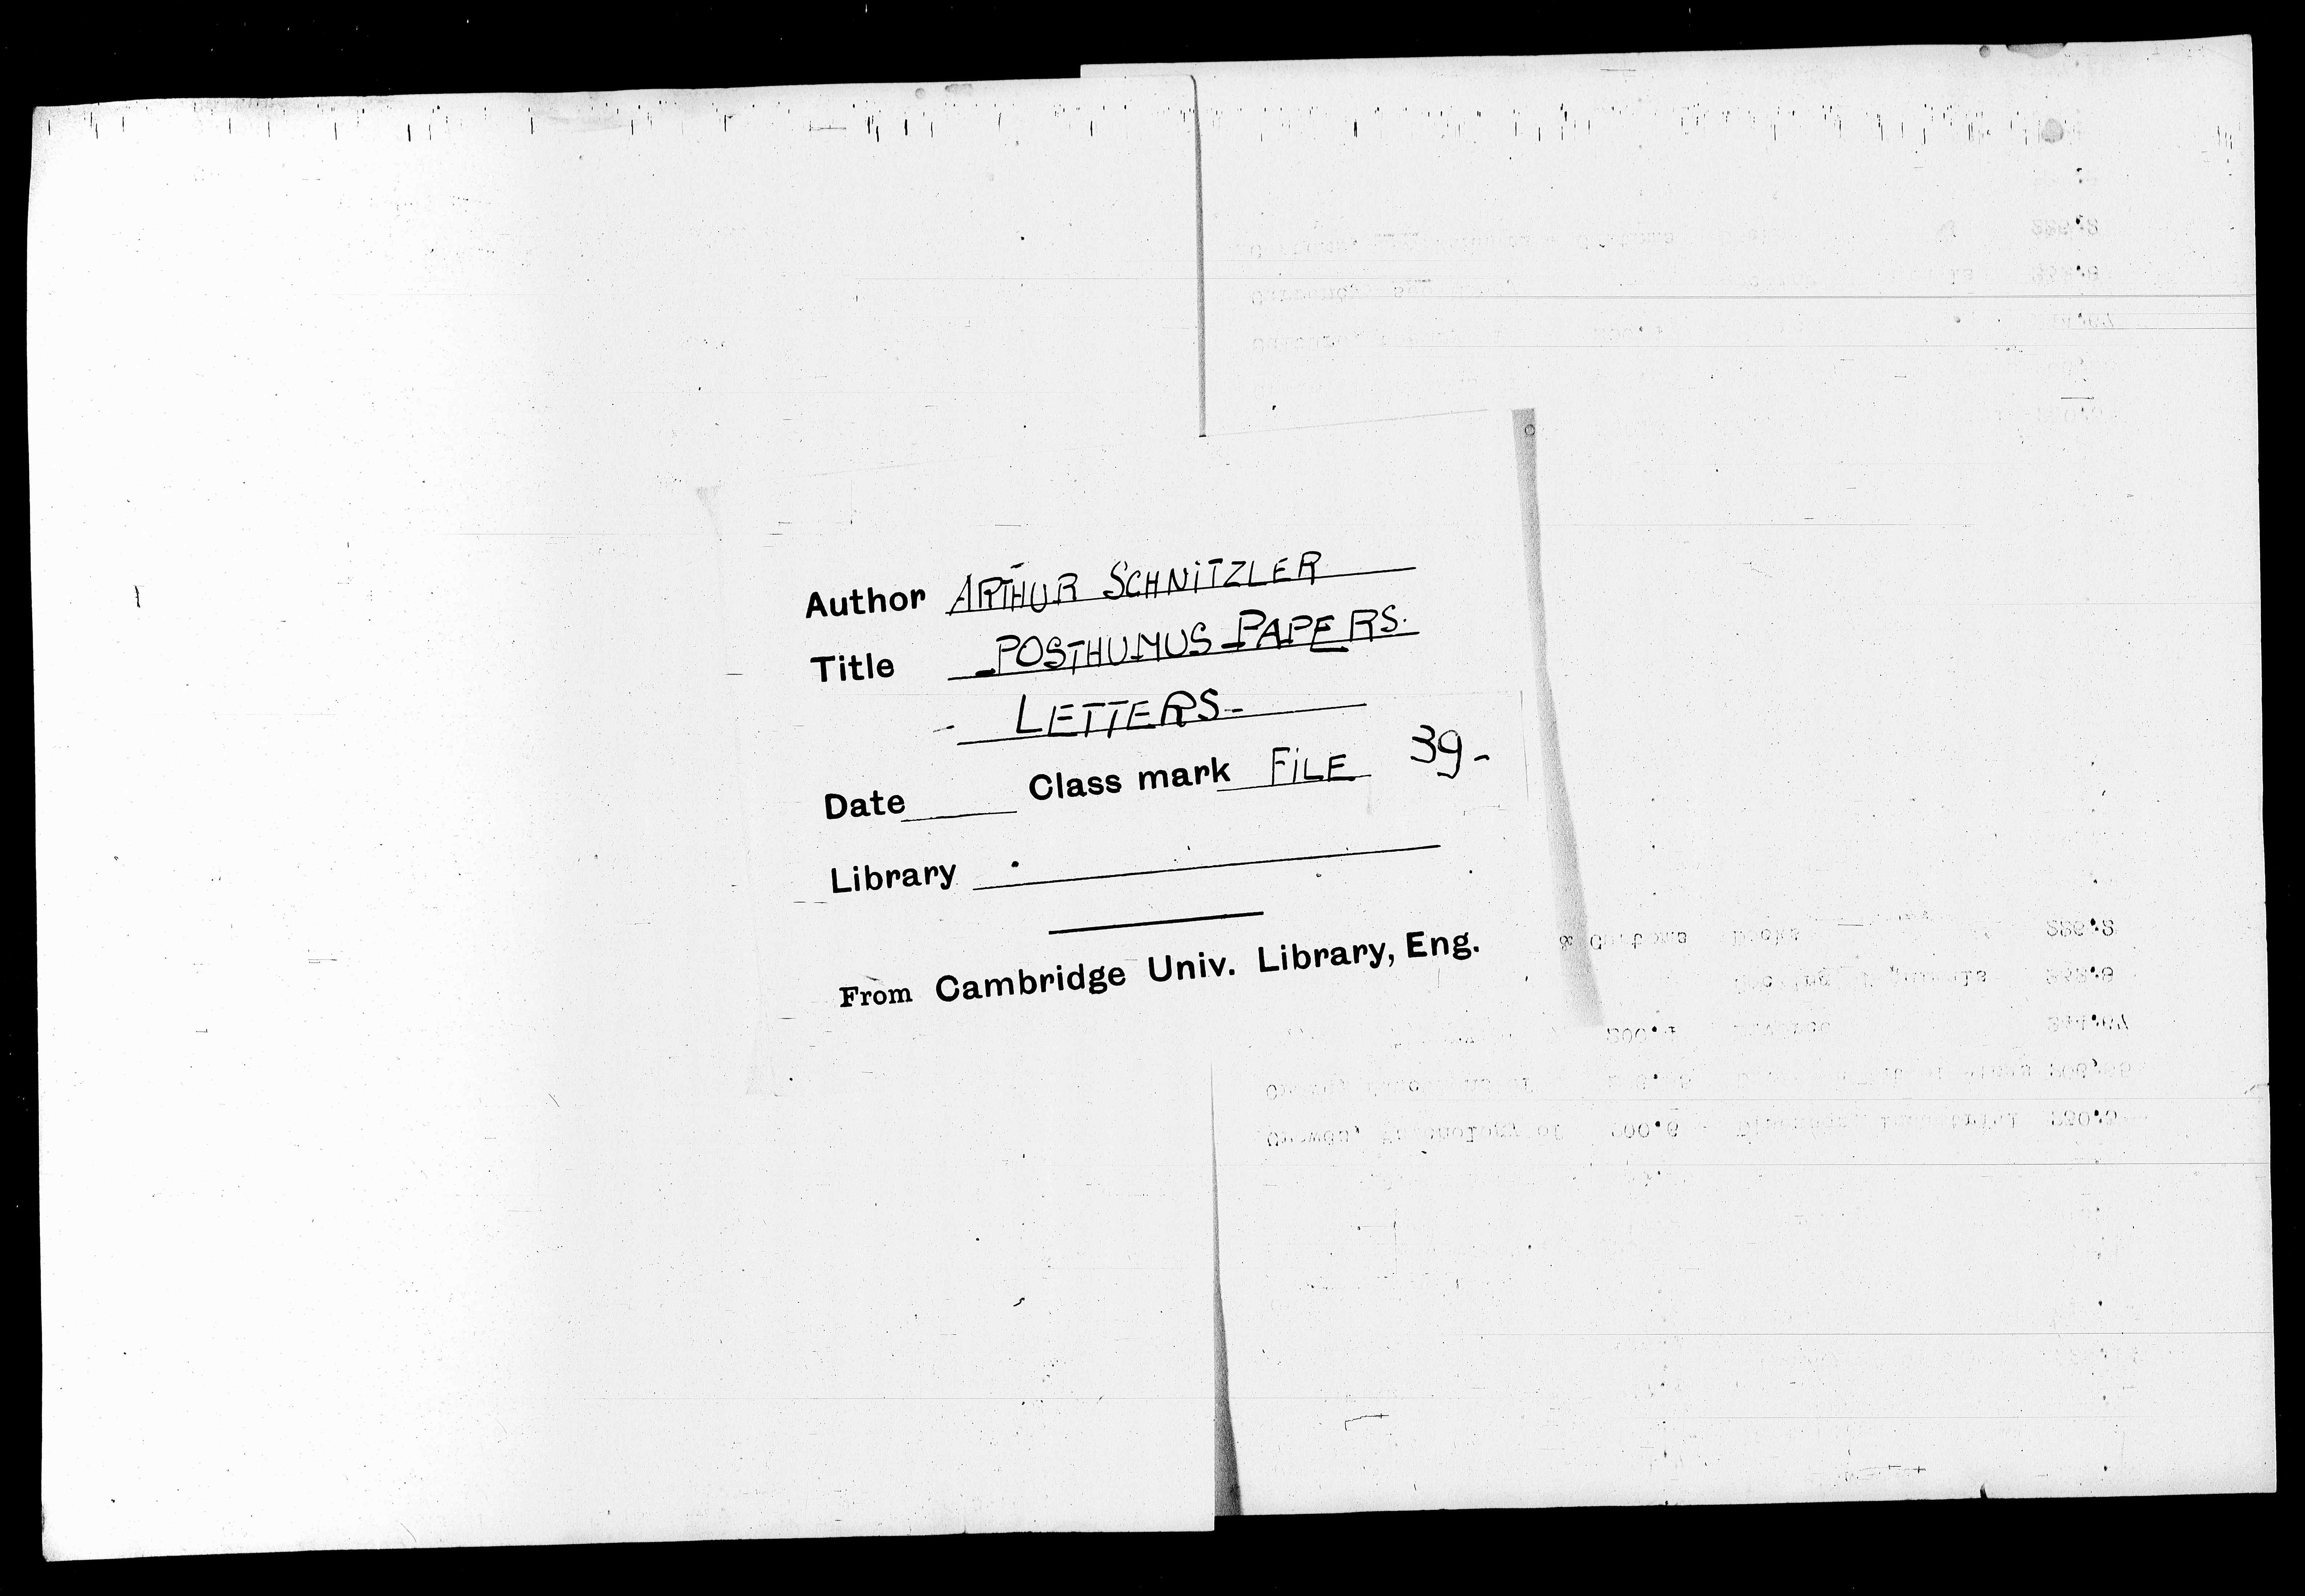 Author ARTHUR SCHNITZLER
Title POSTHUMUS PAPERS.
- LETTERS-
Date Class mark FILE 39-
Library
From Cambridge Univ. Library, Eng.